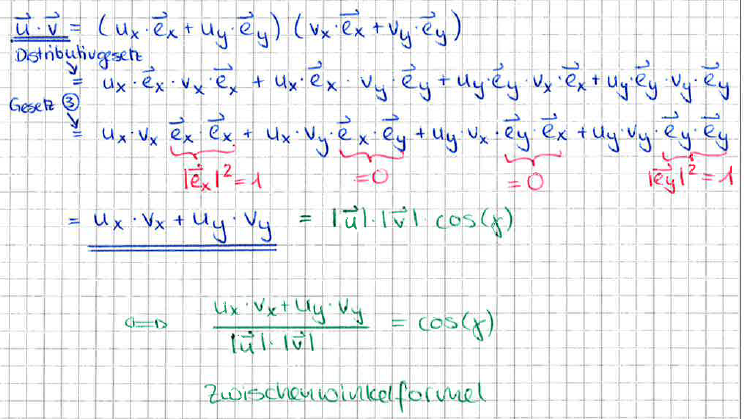 u⃗ · v⃗ = (uₓ · e⃗ₓ + u_y · e⃗_y) (vₓ · e⃗ₓ + v_y · e⃗_y)
Distributivgesetz
= uₓ · e⃗ₓ · vₓ · e⃗ₓ + uₓ · e⃗ₓ · v_y · e⃗_y + u_y · e⃗_y · vₓ · e⃗ₓ + u_y · e⃗_y · v_y · e⃗_y
Gesetz ③
= uₓ · vₓ e⃗ₓ · e⃗ₓ + uₓ · v_y · e⃗ₓ · e⃗_y + u_y · vₓ · e⃗_y · e⃗ₓ + u_y · v_y · e⃗_y · e⃗_y
|e⃗ₓ|² = 1 = 0 = 0 |e⃗_y|² = 1
= uₓ · vₓ + u_y · v_y = |u⃗| · |v⃗| · cos(γ)
⇔ (uₓ · vₓ + u_y · v_y) / (|u⃗| · |v⃗|) = cos(γ)
Zwischenwinkelformel